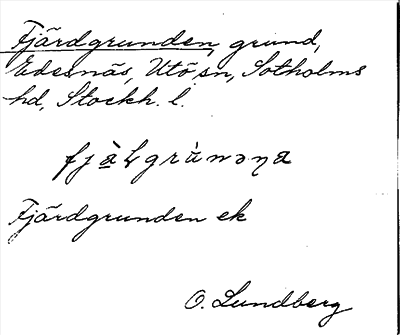 Fjärdgrunden, grund,
Edesnäs, Utö sn, Sotholms
hd, Stockh. l.
Fjärdgrunden ek
O. Lundberg